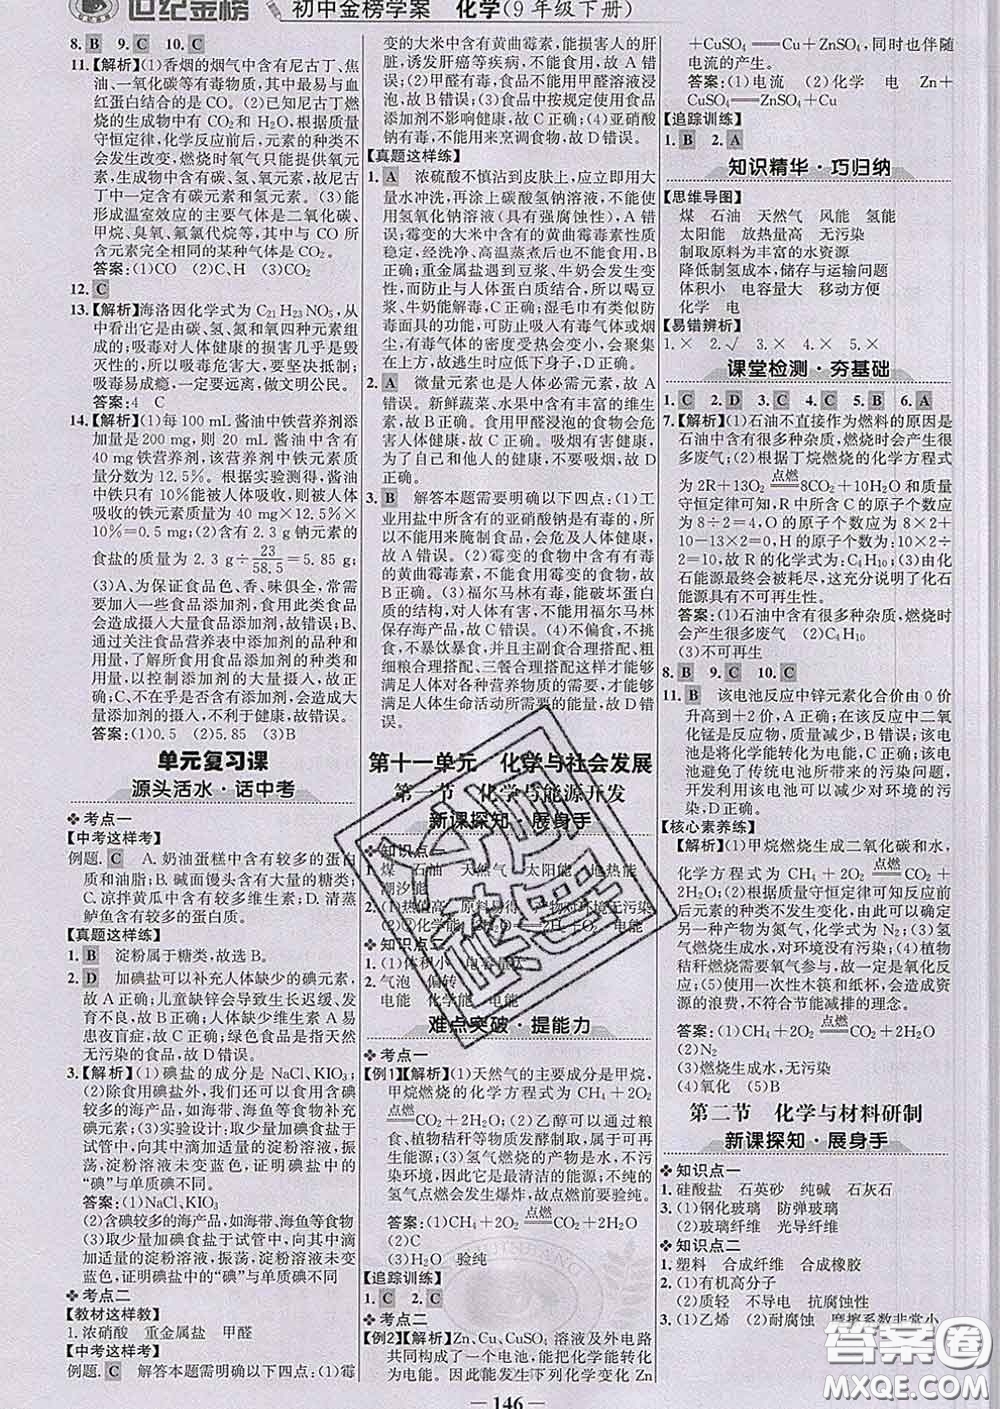 世纪金榜 初中金榜学案 化学(9年级下册)
8. B 9. C 10. C
11.【解析】(1)香烟的烟气中含有尼古丁、焦
油、一氧化碳等有毒物质,其中最易与血
红蛋白结合的是CO。(2)已知尼古丁燃
烧的生成物中有CO2和H2O,根据质量
守恒定律,化学反应前后,元素的种类不
会发生改变,燃烧时氧气只能提供氧元
素,其他元素一定来自尼古丁,所以尼古
丁中一定含有碳元素和氢元素。(3)能
形成温室效应的主要气体是二氧化碳、
甲烷、臭氧、氟氯代烷等,其中与香烟所
含元素完全相同的某种气体是CO2。
答案:(1)CO (2)C、H (3)CO2
12. C
13.【解析】海洛因化学式为C21H23NO5,从
中看出它是由碳、氢、氮和氧四种元素组
成的;吸毒对人体健康的损害几乎是毁
灭性的,所以吸毒危害大,要坚决禁毒。
吸毒易成瘾,一定要远离,做文明公民。
答案:4 C
14.【解析】(1)每100 mL酱油中铁营养剂添
加量是200 mg,则20 mL酱油中含有
40 mg铁营养剂,该营养剂中铁元素质
量分数为12.5%。根据实验测得,酱油
中铁只有10%能被人体吸收,则被人体
吸收的铁元素质量为40 mg×12.5%×
10%=0.5 mg;(2)含有2.3 g钠元素的
食盐的质量为2.3 g÷23/58.5=5.85 g;
(3)A、为保证食品色、香、味俱全,常需
要加入一些食品添加剂,食用此类食品
会造成摄入大量食品添加剂,故错误;B、
通过关注食品营养表中添加剂的品种和
用量,了解所食用食品添加剂的种类和用
量,以控制添加剂的摄入总量,故正确;
C、不在乎是否含有添加剂,会造成大量
添加剂的摄入,不利于健康,故错误。
答案:(1)0.5 (2)5.85 (3)B
单元复习课
源头活水·话中考
考点一
【中考这样考】
例题. C A.奶油蛋糕中含有较多的蛋白
质和油脂;B.碱面馒头含有大量的糖类;
C.凉拌黄瓜中含有较多维生素;D.清蒸
鲈鱼含有较多的蛋白质。
【真题这样练】
1. B 淀粉属于糖类,故选B。
2. D 加碘盐可以补充人体缺少的碘元素,
故A正确;儿童缺锌会导致生长迟缓、发
育不良,故B正确;人体缺少维生素A易
患夜盲症,故C正确;绿色食品是指天然
无污染的食品,故D错误。
3.【解析】(1)碘盐的成分是NaCl、KIO3;
(2)除食用碘盐外,我们还可以食用含碘
较多的海产品,如海带、海鱼等食物补充碘
元素;(3)实验设计:取少量加碘食盐于
试管中,向其中滴加适量的淀粉溶液,振
荡,淀粉溶液未变蓝色,证明碘盐中的
“碘”与单质碘不同。
答案:(1)NaCl、KIO3
(2)含碘较多的海产品,如海带、海鱼等食物
(3)取少量加碘食盐于试管中,向其中滴
加适量的淀粉溶液,振荡,淀粉溶液未变
蓝色,证明碘盐中的“碘”与单质碘不同
考点二
【教材这样教】
1.浓硝酸 重金属盐 甲醛
【中考这样考】
例题. C 解答本题需明确以下四点:(1)霉
变的大米中含有黄曲霉素,能损害人的肝
脏,诱发肝癌等疾病,不能食用,故A错误;
(2)甲醛有毒,食品不能用甲醛溶液浸
泡,故B错误;(3)食品中按规定使用添
加剂不影响健康,故C正确;(4)亚硝酸
钠有毒,不能用来烹调食物,故D错误。
【真题这样练】
1. A 浓硫酸不慎沾到皮肤上,应用大量
水冲洗,再涂上碳酸氢钠溶液,不能使
用氢氧化钠溶液(具有强腐蚀性),A错
误;霉变的大米中含有的黄曲霉素性质
稳定,经洗净、高温蒸煮后也不能食用,
B正确;重金属盐遇到豆浆、牛奶会发生变
性,而与人体蛋白质结合,所以喝豆
浆、牛奶能解毒,C正确;湿毛巾有类似防
毒面具的功能,可防止吸入有毒气体或烟
尘,有毒气体的密度受热会变小,会聚集
在上方,故逃生时应低下身子,D正确。
2. A 微量元素也是人体必需元素,故A
错误。新鲜蔬菜、水果中含有丰富的维生
素,故B正确。食用甲醛浸泡的食物会危
害人体健康,故C正确。吸烟有害健康,
为了自己和他人的健康,不要吸烟,故D
正确。
3. B 解答本题需要明确以下四点:(1)工
业用盐中所含有的亚硝酸钠是有毒的,如
果用来腌制食品,会危及人体健康,故A
错误。(2)霉变的食物中含有有毒的黄
曲霉毒素,不能食用霉变的食物,故B正
确。(3)福尔马林有毒,能破坏蛋白质的
结构,对人体有害,不能用福尔马林保存
海产品,故C错误。(4)不偏食,不挑食,
不暴饮暴食,并且主副食合理搭配、粗
细粮合理搭配、三餐合理搭配才能够满足
人体对各种营养物质的需要,才能够满足
人体生命活动所需的能量,故D错误。
第十一单元 化学与社会发展
第一节 化学与能源开发
新课探知·展身手
知识点一
1.煤 石油 天然气 太阳能 地热能
潮汐能
2.(1)热值高 原料易得 产物对环境无污染
知识点二
1.(1)体积小 电容量大
2.气泡 偏转
电能 化学能 电能
难点突破·提能力
考点一
【例1】【解析】(1)天然气的主要成分是甲烷,
甲烷燃烧的化学方程式为CH4+2O2
点燃 CO2+2H2O;(2)乙醇可以由粮
食、植物秸秆等物质发酵制取,石油属于
化石燃料;(3)氢气燃烧的产物是水,不
污染环境,因此是最清洁的能源。不纯的
氢气点燃会发生爆炸,故点燃前要验纯。
答案:(1)CH4+2O2 点燃 CO2+2H2O
(2)C
(3)H2O 验纯
【追踪训练】
1. C 2. C
考点二
【例2】【解析】Zn、Cu、CuSO4溶液及外电路
共同构成了一个电池,能把化学能转变为
电能。因此能发生下列化学变化Zn
+CuSO4═Cu+ZnSO4,同时也伴随
电流的产生。
答案:(1)电流 (2)化学 电 Zn+
CuSO4═ZnSO4+Cu
【追踪训练】
1. B 2. A
知识精华·巧归纳
【思维导图】
煤 石油 天然气 风能 氢能
太阳能 放热量高 无污染
制取原料为丰富的水资源
降低制氢成本,储存与运输问题
体积小 电容量大 移动方便
化学 电
【易错辨析】
1.× 2.√ 3.× 4.× 5.×
课堂检测·夯基础
1. C 2. D 3. C 4. C 5. B 6. A
7.【解析】(1)石油不直接作为燃料的原因是
石油中含有很多种杂质,燃烧时会产生很
多废气;(2)根据丁烷燃烧的化学方程式
为2R+13O2 点燃 8CO2+10H2O和质量
守恒定律可知,R中所含C的原子个数应
为8÷2=4,O的原子个数应为8×2+
10-13×2=0,H的原子个数为:10×2÷
2=10,故R的化学式为:C4H10;(3)由化
石能源最终会被耗尽,这充分说明了化石
能源具有不可再生性。
答案:(1)石油中含有很多种杂质,燃烧时
会产生很多废气 (2)C4H10
(3)不可再生
8. B 9. C 10. C
11. B 该电池反应中锌元素化合价由0价
升高到+2价,A正确;在该反应中二氧
化锰是反应物,质量减小,故B错误;该
电池是将化学能转化为电能,故C正确;
开发利用该电池可以减少污染,能避免
过度消耗传统电池所造成的环境污染,故
D正确。
【核心素养练】
【解析】(1)甲烷燃烧生成二氧化碳和水,
化学方程式为CH4+2O2 点燃 CO2+
2H2O;(2)根据质量守恒定律,反应前
后元素的种类不发生变化,由此可以确定
另一种产物为氮气,化学式为N2;(3)氢
气燃烧生成水,对环境没有污染;(4)植物
秸秆燃烧需要氧气参与,故一定是氧化反
应;(5)使用一次性木筷和纸张,会造成资
源的浪费,不符合节能减排的理念。
答案:(1)CH4+2O2 点燃 CO2+2H2O
(2)N2
(3)燃烧生成水,无污染
(4)氧化 (5)B
第二节 化学与材料研制
新课探知·展身手
知识点一
1.硅酸盐 石英砂 纯碱 石灰石
3.(1)钢化玻璃 防弹玻璃
(2)玻璃纤维 光导纤维
知识点二
1.塑料 合成纤维 合成橡胶
2.(1)有机高分子
(2)质轻 不导电 抗腐蚀性
3.(1)乙烯 (2)耐腐蚀 摩擦系数非常小
— 146 —
答案圈
MXQE.COM